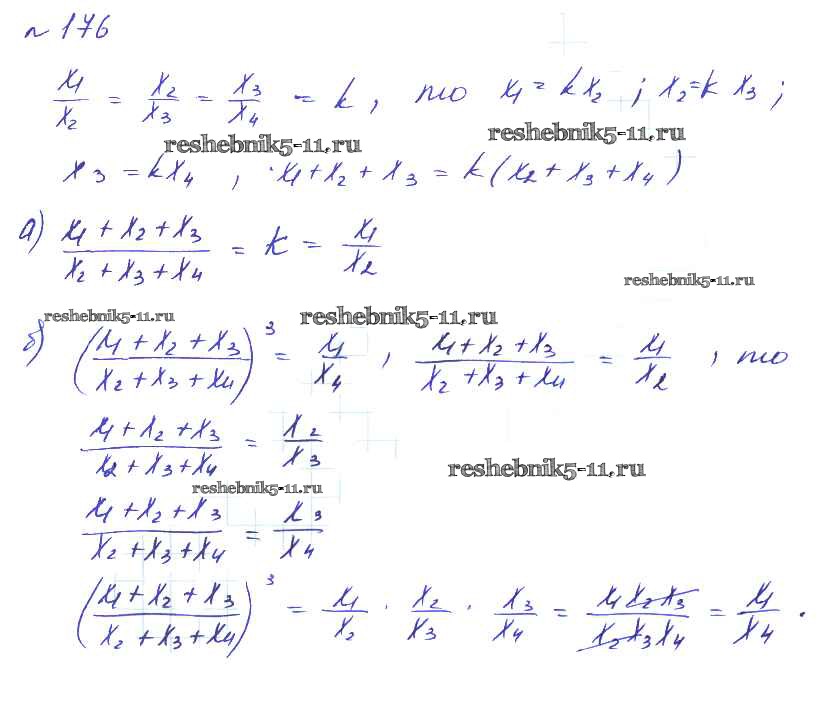 № 176
x₁/x₂ = x₂/x₃ = x₃/x₄ = k, то x₁ = kx₂ ; x₂ = k x₃ ;
reshebnik5-11.ru reshebnik5-11.ru
x₃ = kx₄ , x₁ + x₂ + x₃ = k(x₂ + x₃ + x₄)
а) (x₁ + x₂ + x₃)/(x₂ + x₃ + x₄) = k = x₁/x₂
reshebnik5-11.ru
reshebnik5-11.ru reshebnik5-11.ru
б) ((x₁ + x₂ + x₃)/(x₂ + x₃ + x₄))³ = x₁/x₄ , (x₁ + x₂ + x₃)/(x₂ + x₃ + x₄) = x₁/x₂ , то
(x₁ + x₂ + x₃)/(x₂ + x₃ + x₄) = x₂/x₃
reshebnik5-11.ru
reshebnik5-11.ru
(x₁ + x₂ + x₃)/(x₂ + x₃ + x₄) = x₃/x₄
((x₁ + x₂ + x₃)/(x₂ + x₃ + x₄))³ = x₁/x₂ · x₂/x₃ · x₃/x₄ = (x₁x₂x₃)/(x₂x₃x₄) = x₁/x₄ .